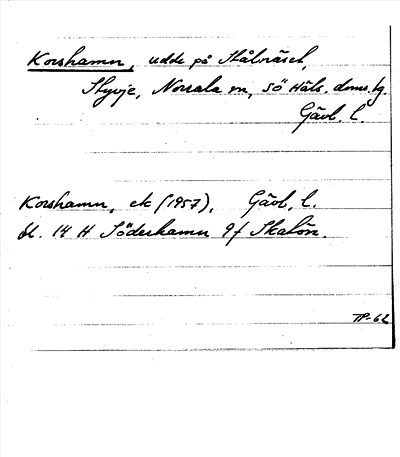 Korshamn, udde på Stålnäset,
Styvje, Norrala sn, Sö Häls. doms.tg.
Gävl. l.
Korshamn, ek (1957), Gävl. l.
bl. 14 H Söderhamn 9f Skalön.
TP-62